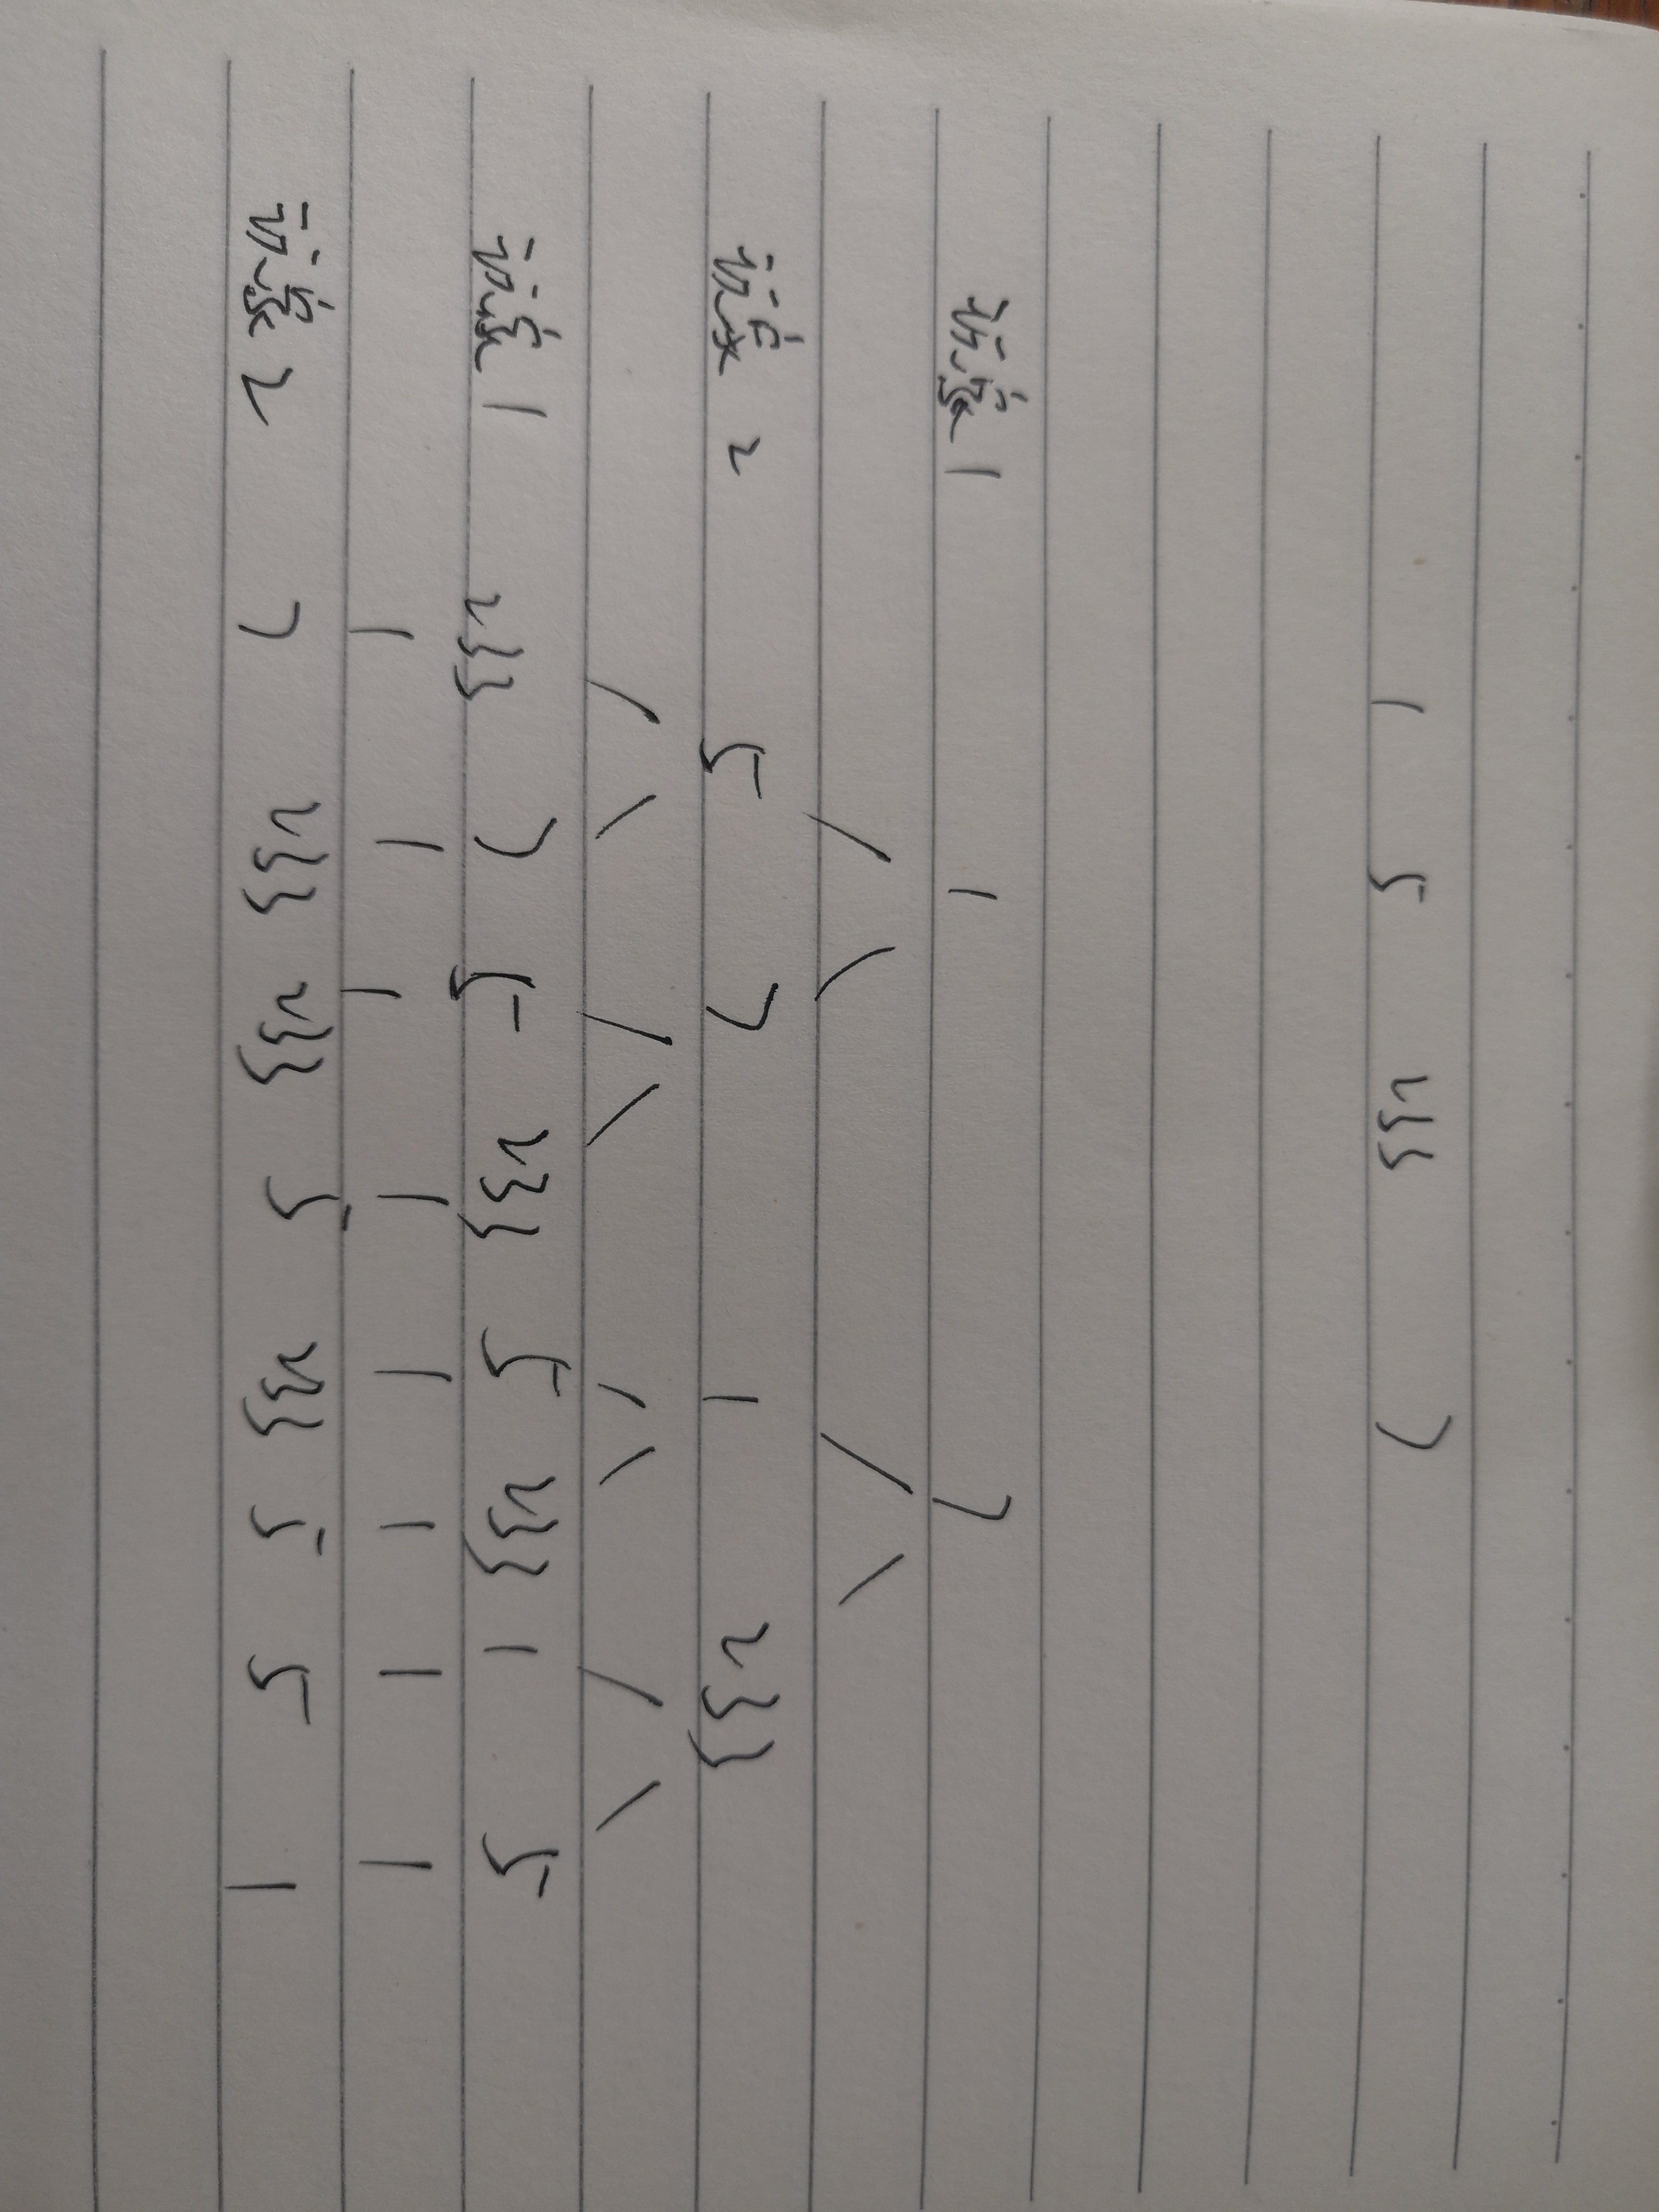 1 5 233 7
玩家1 1 7
玩家2 5 7 1 233
玩家1 233 7 5 233 5 233 1 5
玩家2 7 233 233 5 233 5 5 1